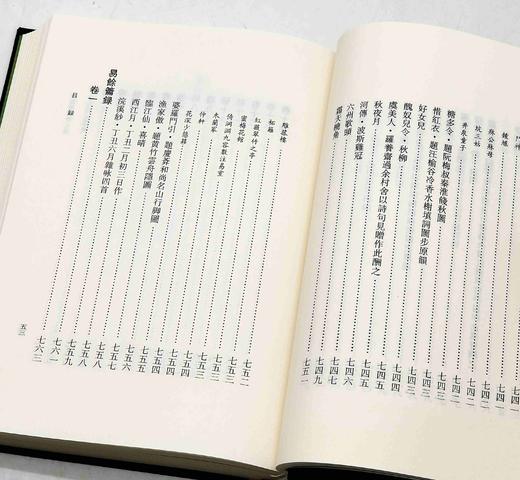 蘇公祠
坟三姑
井泉童子
糖多令·題阮梅叔秦淮餞秋圖
惜紅衣·題汪楡谷冷香水榭填詞圖步原韻
好女兒
醜奴兒令·秋柳
虞美人·羅養齋過余村舍以詩句見贈作此酬之
秋夜月
河傳·波斯雞冠
六州歌頭
七四一
七四一
七四二
七四二
七四三
七四四
七四四
七四五
七四五
七四六
七四九
七五一
雕菰樓
柘籬
蜜梅花館
紅薇翠竹之亭
倚洞淵九容數注易室
木蘭冢
仲軒
花深少態簃
婆羅門引·題慶齋和尚名山行脚圖
漁家傲·題黄竹雲舟隱圖
臨江仙·喜晴
西江月·丁丑二月初三日作
浣溪紗·丁丑六月雜咏四首
易餘籥録
卷一
七五二
七五二
七五三
七五三
七五四
七五四
七五五
七五七
七五八
七五八
七五九
七五九
七六一
七六三
目録
五三